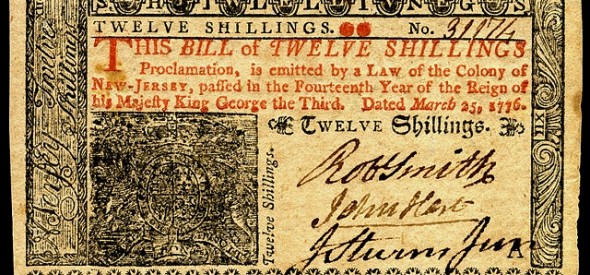 TWELVE SHILLINGS. No.
THIS BILL of TWELVE SHILLINGS
Proclamation, is emitted by a LAW of the Colony of
NEW-JERSEY, passed in the Fourteenth Year of the Reign of
his Majesty King George the Third. Dated March 25, 1776.
TWELVE Shillings.
Twelve Shillings.
Rob Smith
John Hart
J Stevens Jun
A
XII